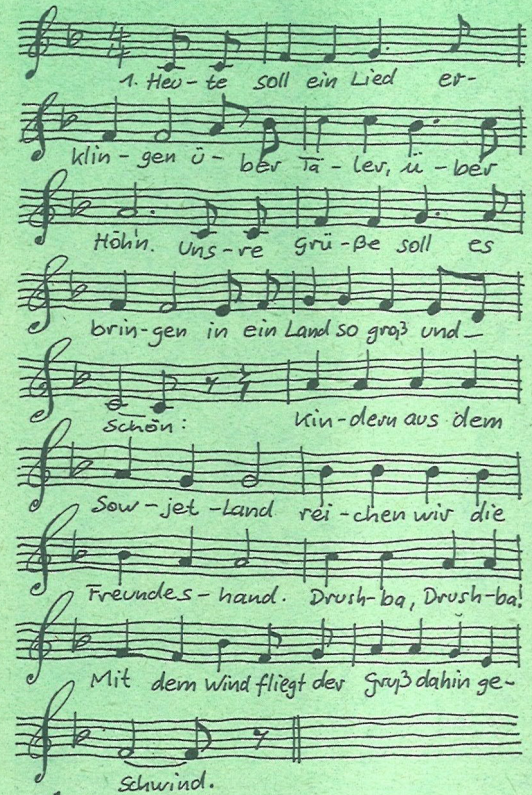 1. Heu-te soll ein Lied er-
klin-gen ü-ber Tä-ler, ü-ber
Höh'n. Uns-re Grü-ße soll es
brin-gen in ein Land so groß und_
schön: Kin-dern aus dem
Sow-jet-Land rei-chen wir die
Freundes-hand. Drush-ba, Drush-ba!
Mit dem Wind fliegt der Gruß dahin ge-
schwind.